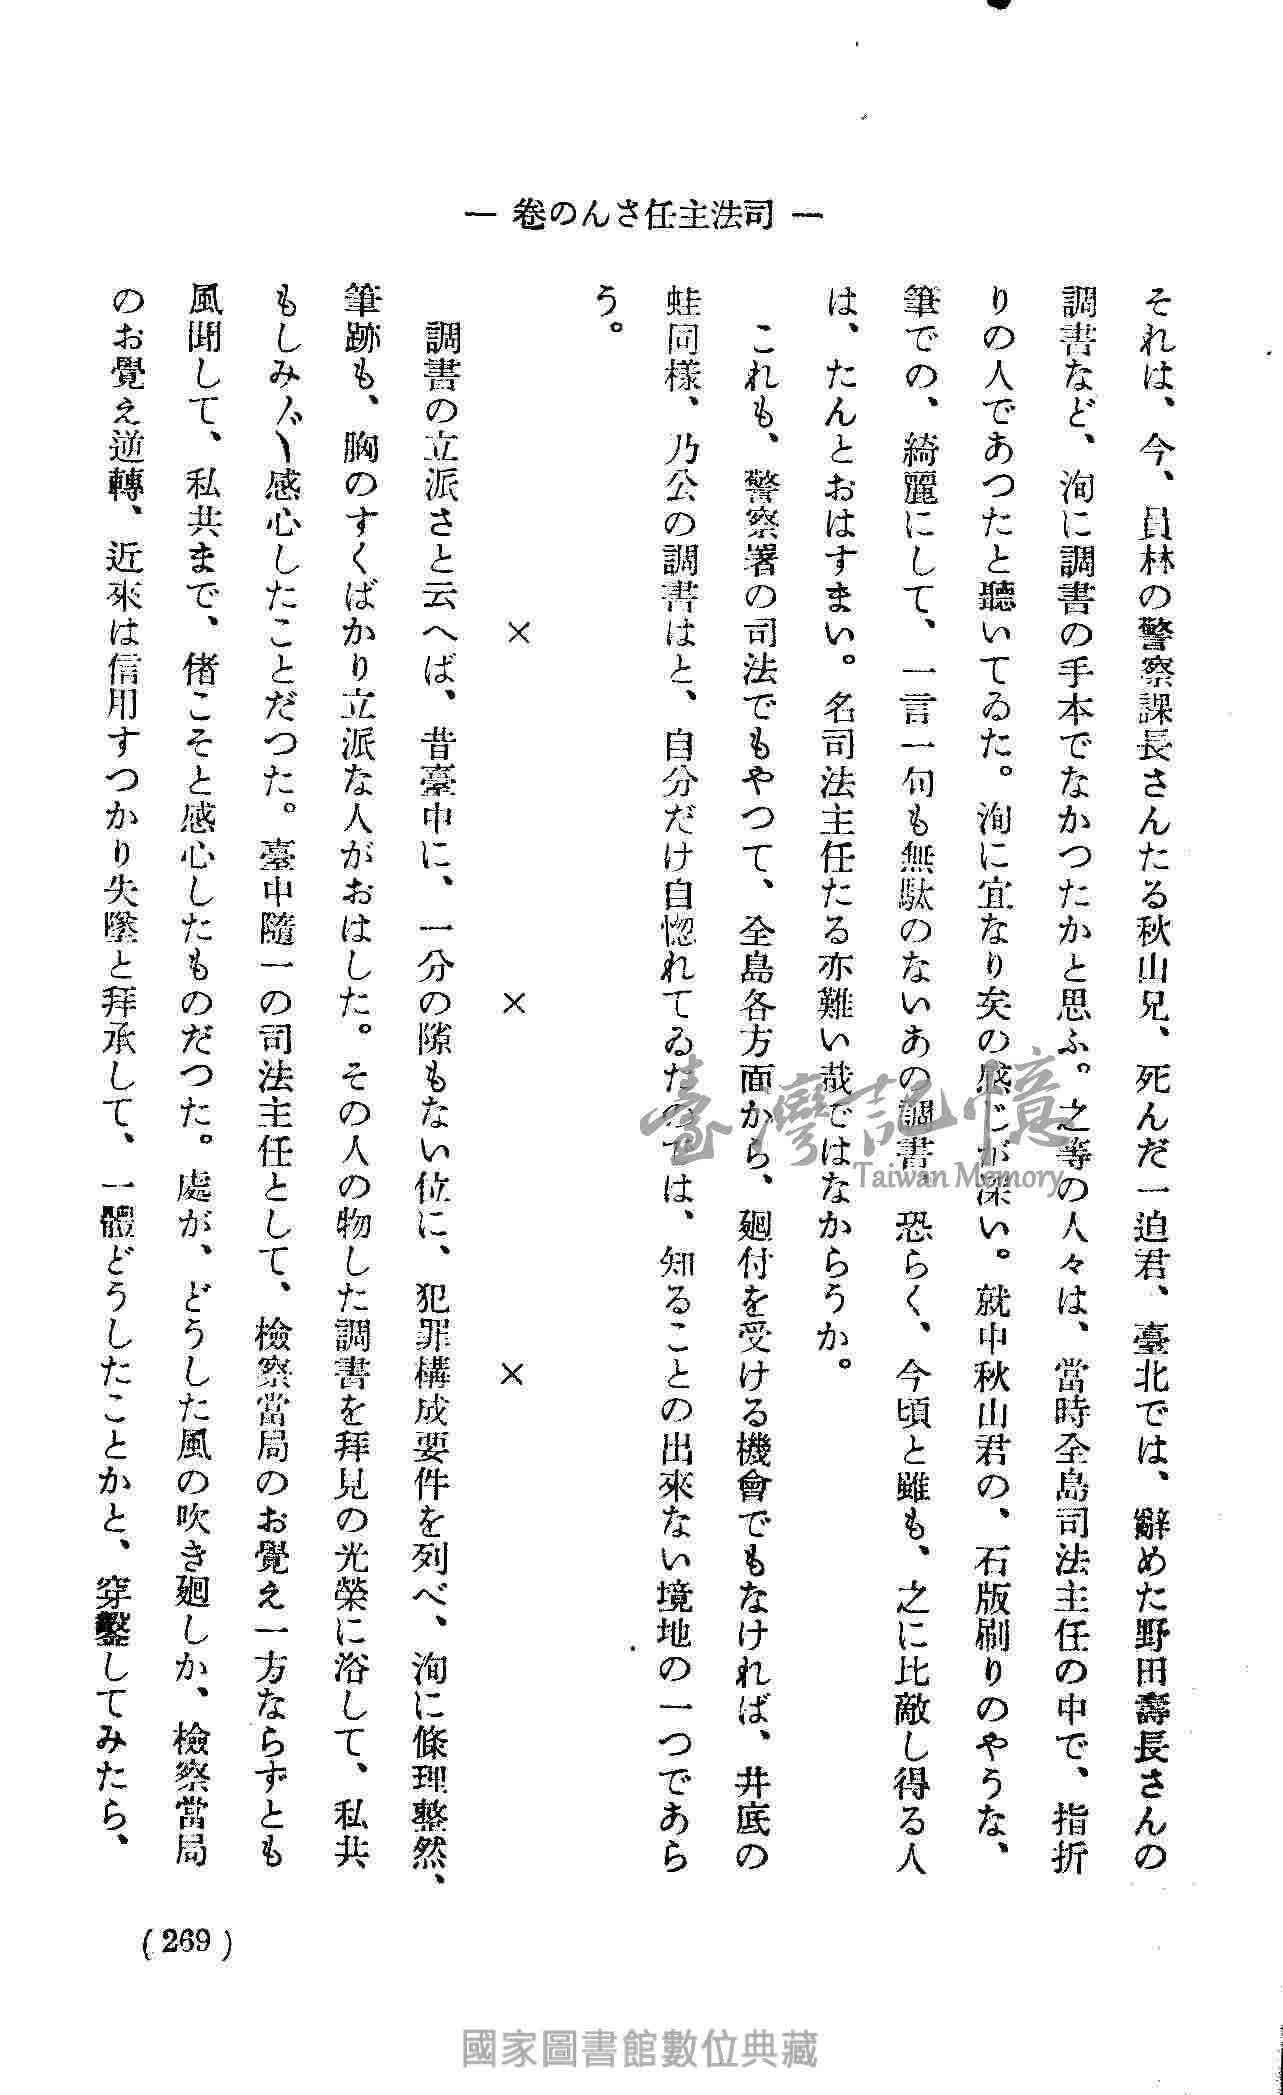 ― 司法主任さんの卷 ―
それは、今、員林の警察課長さんたる秋山兄、死んだ一迫君、臺北では、辭めた野田壽長さんの
調書など、洵に調書の手本でなかつたかと思ふ。之等の人々は、當時全島司法主任の中で、指折
りの人であつたと聽いてゐた。洵に宜なり矣の感じが深い。就中秋山君の、石版刷りのやうな、
筆での、綺麗にして、一言一句も無駄のないあの調書、恐らく、今頃と雖も、之に比敵し得る人
は、たんとおはすまい。名司法主任たる亦難い哉ではなからうか。
これも、警察署の司法でもやつて、全島各方面から、廻付を受ける機會でもなければ、井底の
蛙同樣、乃公の調書はと、自分だけ自惚れてゐたのでは、知ることの出來ない境地の一つであら
う。
× × ×
調書の立派さと云へば、昔臺中に、一分の隙もない位に、犯罪構成要件を列べ、洵に條理整然、
筆跡も、胸のすくばかり立派な人がおはした。その人の物した調書を拜見の光榮に浴して、私共
もしみ〲感心したことだつた。臺中隨一の司法主任として、檢察當局のお覺え一方ならずとも
風聞して、私共まで、偖こそと感心したものだつた。處が、どうした風の吹き廻しか、檢察當局
のお覺え逆轉、近來は信用すつかり失墜と拜承して、一體どうしたことかと、穿鑿してみたら、
(269)
臺灣記憶
Taiwan Memory
國家圖書館數位典藏